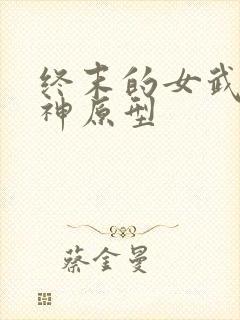 终末的女武
神原型
蔡金曼